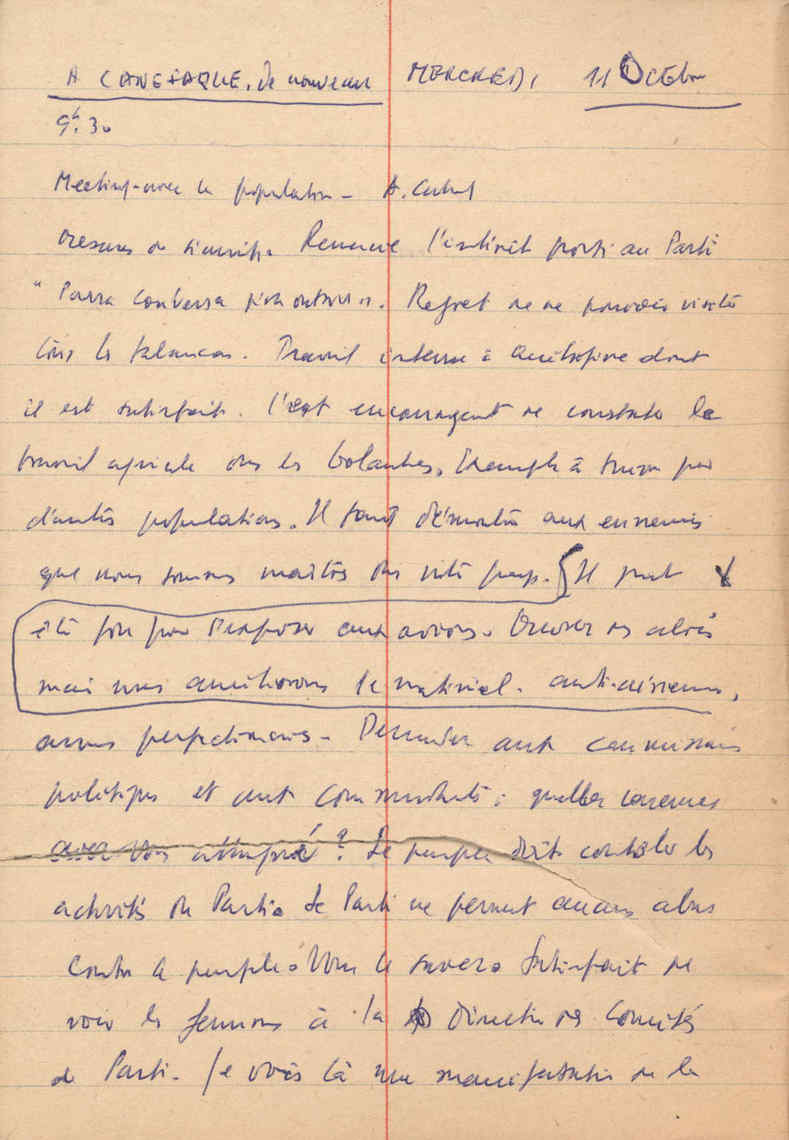 A CANEFAQUE, de nouveau MERCREDI 11 OCTobre
9h.30
Meeting avec la population - A. Cabral
mesures de sécurité. Remercie l'intérêt porté au Parti
Regret de ne pouvoir visiter
tous les tabancas. Travail intense à dont
il est satisfait. C'est encourageant de constater le
travail agricole des Balantes, Exemple à suivre par
d'autres populations. Il faut démontrer aux ennemis
que nous sommes maîtres de notre pays. Il peut
être fou pour s'exposer aux avions. Creuser des abris
mais nous améliorons le matériel. anti-aériens,
armes perfectionnées - Demander aux commissaires
politiques et aux commandants : quelles casernes
avez vous attaqué ? Le peuple doit contrôler les
activités du Parti. Le Parti ne permet aucun abus
contre le peuple. Vous le savez. Satisfait de
voir les femmes à la Direction des Comités
de Parti. Je vois là une manifestation de la